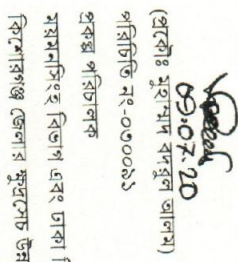 ০৭.০৭.২০
(প্রকৌঃ মুহাম্মদ বদরুল আলম)
পরিচিতি নং-০৩০০৯৯
প্রকল্প পরিচালক
ময়মনসিংহ বিভাগ এবং ঢাকা বি
কিশোরগঞ্জ জেলার ক্ষুদ্রসেচ উন্ন